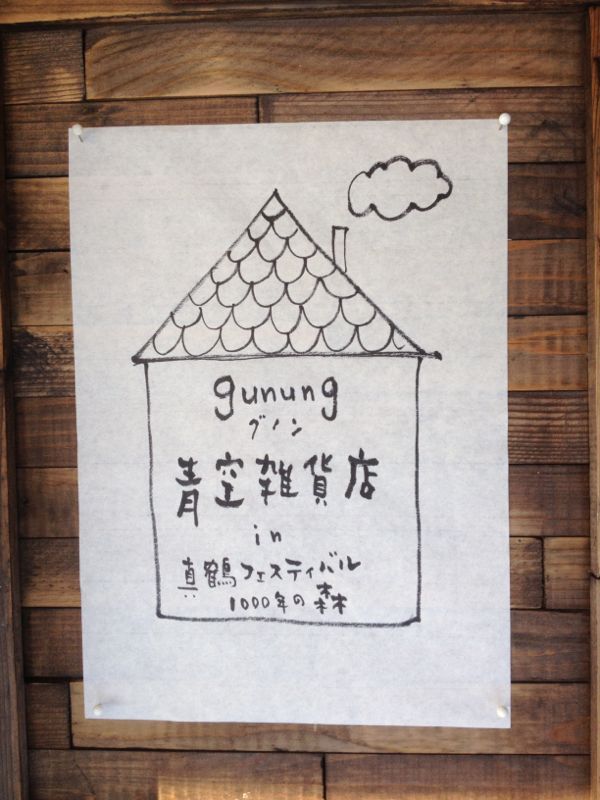 gunung
グノン
青空雑貨店
in
真鶴フェスティバル
1000年の森